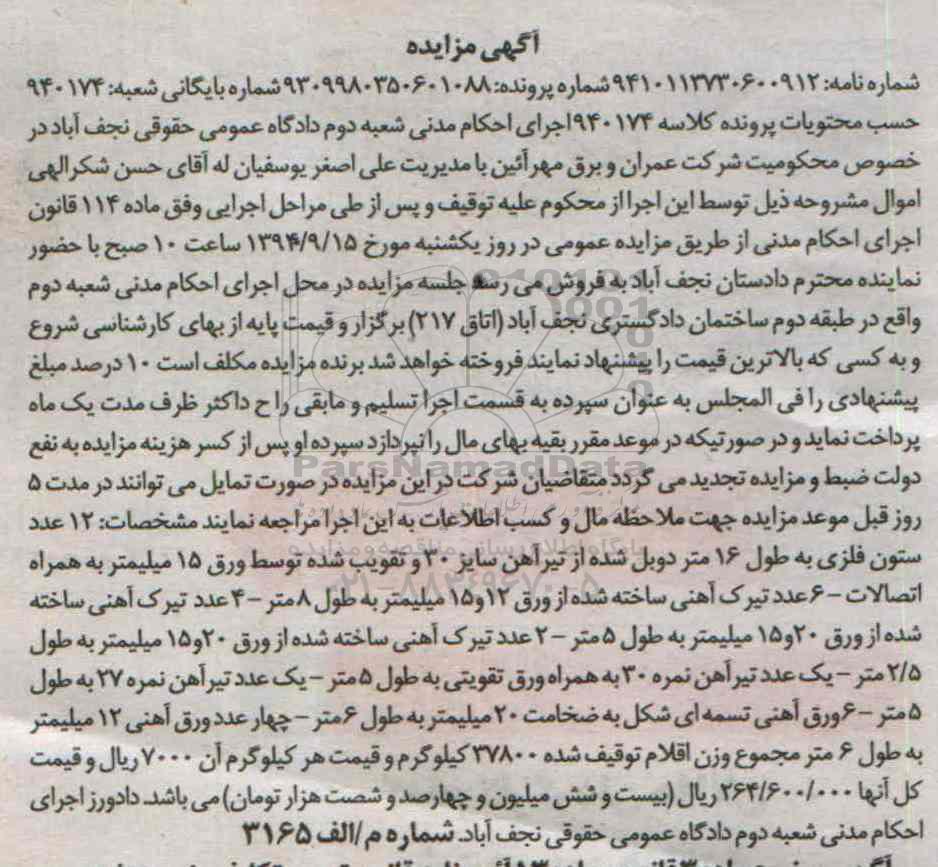 آگهی مزایده
شماره نامه: ۹۴۱۰۱۱۳۷۳۰۶۰۰۹۱۲ شماره پرونده: ۹۳۰۹۹۸۰۳۵۰۶۰۱۰۸۸ شماره بایگانی شعبه: ۹۴۰۱۷۴
حسب محتویات پرونده کلاسه ۹۴۰۱۷۴ اجرای احکام مدنی شعبه دوم دادگاه عمومی حقوقی نجف آباد در
خصوص محکومیت شرکت عمران و برق مهر آئین با مدیریت علی اصغر یوسفیان له آقای حسن شکرالهی
اموال مشروحه ذیل توسط این اجرا از محکوم علیه توقیف و پس از طی مراحل اجرایی وفق ماده ۱۱۴ قانون
اجرای احکام مدنی از طریق مزایده عمومی در روز یکشنبه مورخ ۱۳۹۴/۹/۱۵ ساعت ۱۰ صبح با حضور
نماینده محترم دادستان نجف آباد به فروش می رسد جلسه مزایده در محل اجرای احکام مدنی شعبه دوم
واقع در طبقه دوم ساختمان دادگستری نجف آباد (اتاق ۲۱۷) برگزار و قیمت پایه از بهای کارشناسی شروع
و به کسی که بالاترین قیمت را پیشنهاد نمایند فروخته خواهد شد برنده مزایده مکلف است ۱۰ درصد مبلغ
پیشنهادی را فی المجلس به عنوان سپرده به قسمت اجرا تسلیم و مابقی را ح داکثر ظرف مدت یک ماه
پرداخت نماید و در صورتیکه در موعد مقرر بقیه بهای مال را نپردازد سپرده او پس از کسر هزینه مزایده به نفع
دولت ضبط و مزایده تجدید می گردد متقاضیان شرکت در این مزایده در صورت تمایل می توانند در مدت ۵
روز قبل موعد مزایده جهت ملاحظه مال و کسب اطلاعات به این اجرا مراجعه نمایند مشخصات: ۱۲ عدد
ستون فلزی به طول ۱۶ متر دوبل شده از تیرآهن سایز ۳۰ و تقویب شده توسط ورق ۱۵ میلیمتر به همراه
اتصالات – ۶ عدد تیرک آهنی ساخته شده از ورق ۱۲ و ۱۵ میلیمتر به طول ۸ متر – ۴ عدد تیرک آهنی ساخته
شده از ورق ۲۰ و ۱۵ میلیمتر به طول ۵ متر – ۲ عدد تیرک آهنی ساخته شده از ورق ۲۰ و ۱۵ میلیمتر به طول
۲/۵ متر – یک عدد تیرآهن نمره ۳۰ به همراه ورق تقویتی به طول ۵ متر – یک عدد تیرآهن نمره ۲۷ به طول
۵ متر – ۶ ورق آهنی تسمه ای شکل به ضخامت ۲۰ میلیمتر به طول ۶ متر – چهار عدد ورق آهنی ۱۲ میلیمتر
به طول ۶ متر مجموع وزن اقلام توقیف شده ۳۷۸۰۰ کیلوگرم و قیمت هر کیلوگرم آن ۷۰۰۰ ریال و قیمت
کل آنها ۲۶۴/۶۰۰/۰۰۰ ریال (بیست و شش میلیون و چهارصد و شصت هزار تومان) می باشد. دادورز اجرای
احکام مدنی شعبه دوم دادگاه عمومی حقوقی نجف آباد. شماره م/الف ۳۱۶۵
ParsNamadData